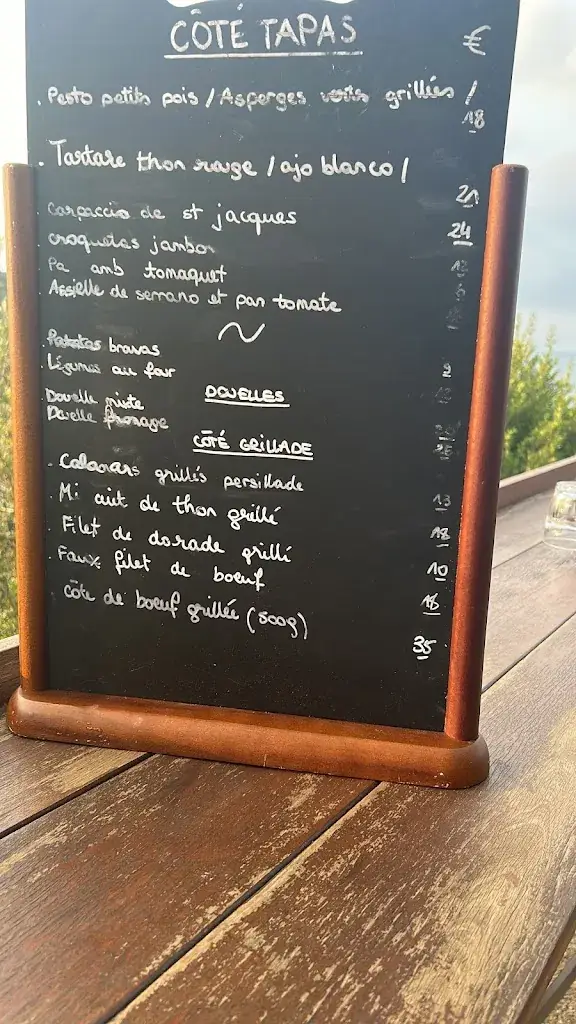 CÔTÉ TAPAS €
. Pesto petits pois / Asperges vertes grillées /
18
. Tartare thon rouge / ajo blanco /
21
. Carpaccio de st jacques 24
. croquetas jambon
. Pa amb tomaquet
. Assiette de serrano et pan tomate
. Patatas bravas 9
. Légumes au four
DOUELLES
Douelle mixte
Douelle fromage
CÔTÉ GRILLADE
. Calamars grillés persillade 13
. Mi cuit de thon grillé 18
. Filet de dorade grillé 10
. Faux filet de boeuf 18
. côte de boeuf grillée (500g) 35